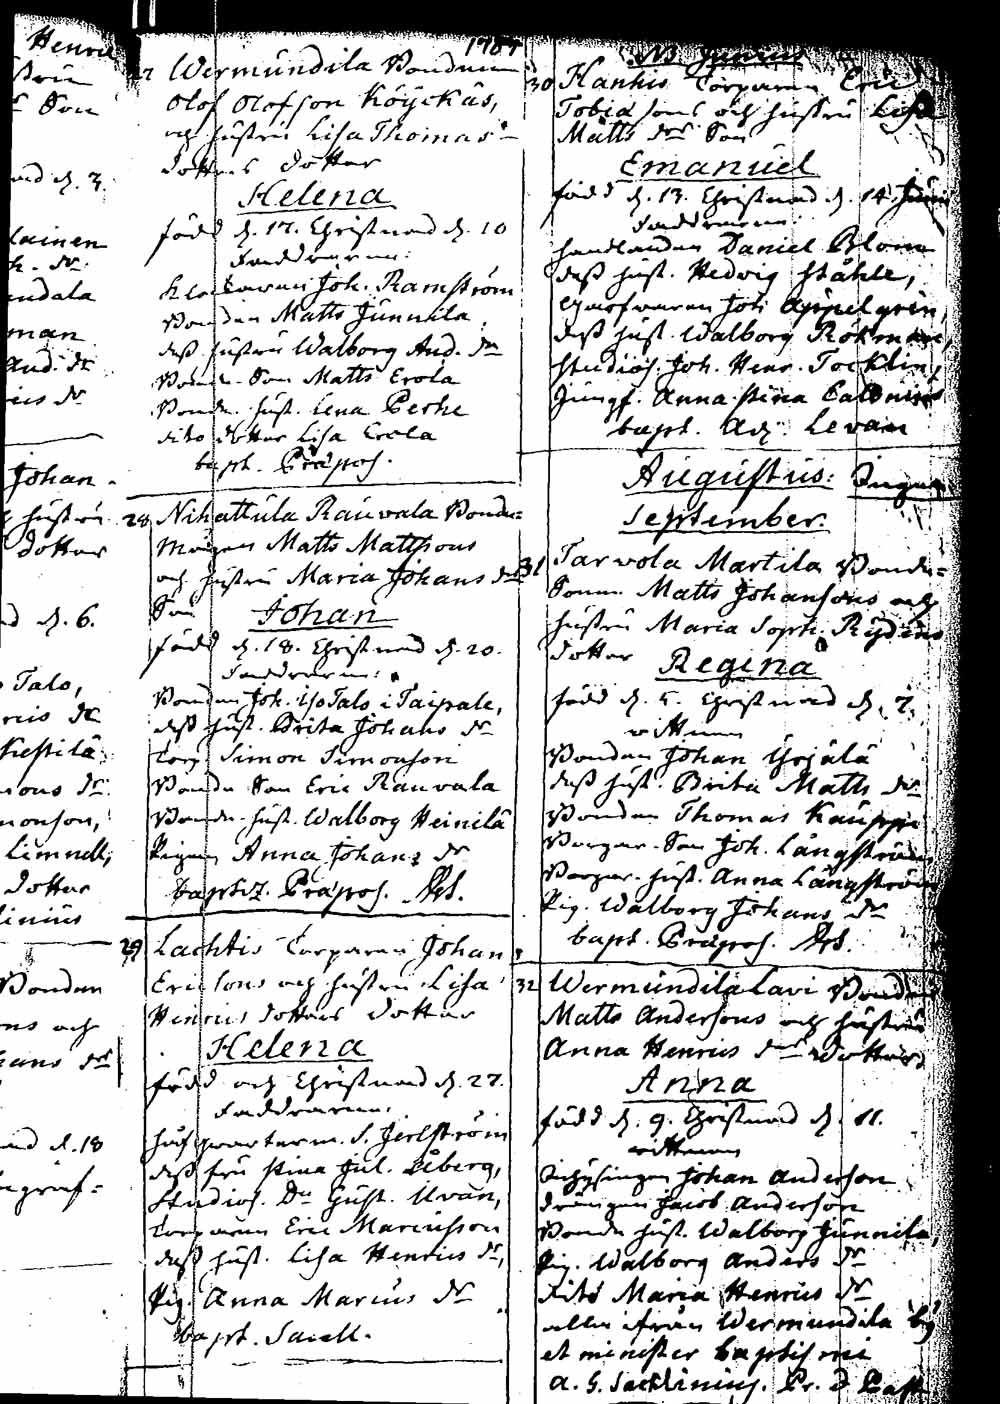 Henric
Son
d. 3.
lainen
dr
andala
man
And. dr
dr
Johan
hustru
dotter
d. 6.
Talo,
dr
Keskilä
sons dr
monson,
Limnell,
dotter
linius
Bonden
och
hans dr
d. 18
1787
27 Wermundila Bonden
Olof Olofson Köyckäs,
och hustru Lisa Thomas
dotters dotter
Helena
född d. 17. Christnad d. 10
Faddrarne:
Joh. Ramström
Bonden Matts Junnila,
dess hustru Walborg And. dr
Bonde Son Matts Erola
Bonde hust. Lena Perhe
dito dotter Lisa Erola
bapt. Præpos.
28 Nihattula Rauwala Bonde=
Mågen Matts Mattsons
och hustru Maria Johans dr
Son Johan
född d. 18. Christnad d. 20.
Faddrarne:
Bonden Joh. YliTalo i Taipale,
dess hust. Brita Johans dr
Torp Simon Simonson
Bonde Son Eric Rauwala
Bonde hust. Walborg Heinilä
Pigan Anna Johans dr
baptiz. Præpos.
29 Lachtis Torparen Johan
Ericsons och hustru Lisa
Henrics dotters dotter
Helena
född och Christnad d. 27.
Faddrarne:
S. Jerlström
dess fru Stina Jul. Åberg,
Studios. Gust. Uvan,
Torparen Eric Marcusson
dess hust. Lisa Henrics dr,
Pig. Anna Marcus dr
bapt. Sacell.
NB Junius
30 Hankis Torparen Eric
Tobiasons och hustru Lisa
Matts dr Son
Emanuel
född d. 13. Christnad d. 14 Junii
Faddrarne:
handlanden Daniel Blom
dess hust. Hedwig Ståhle,
Garfwaren Joh. Appelgren,
dess hust. Walborg Rökman,
Studios. Joh. Henr. Tocklin,
Jungf. Anna Stina
bapt. Adj. Levan
Augustus: Ingen
September.
31 Tarvola Martila Bonde=
Sonen Matts Johansons och
hustru Maria Soph. Rydens
dotter Regina
född d. 5. Christnad d. 7.
wittnen
Bonden Johan Yrjälä
dess hust. Brita Matts dr
Bonden Thomas Kauppi
Borgar. Son Joh. Långström
Borgar. hust. Anna Långström
Pig. Walborg Johans dr
bapt. Præpos.
32 Wermundila Lavi Bonden
Matts Andersons och hustru
Anna Henrics dr dotter
Anna
född d. 9. Christnad d. 11.
wittnen
Inhysingen Johan Anderson
drängen Jacob Anderson
Bonde hust. Walborg Junnila,
Pig. Walborg Anders dr
dito Maria Henrics dr
alla ifrån Wermundila by
et minister baptismi
A. G. Sacklinius. Pr. & Past